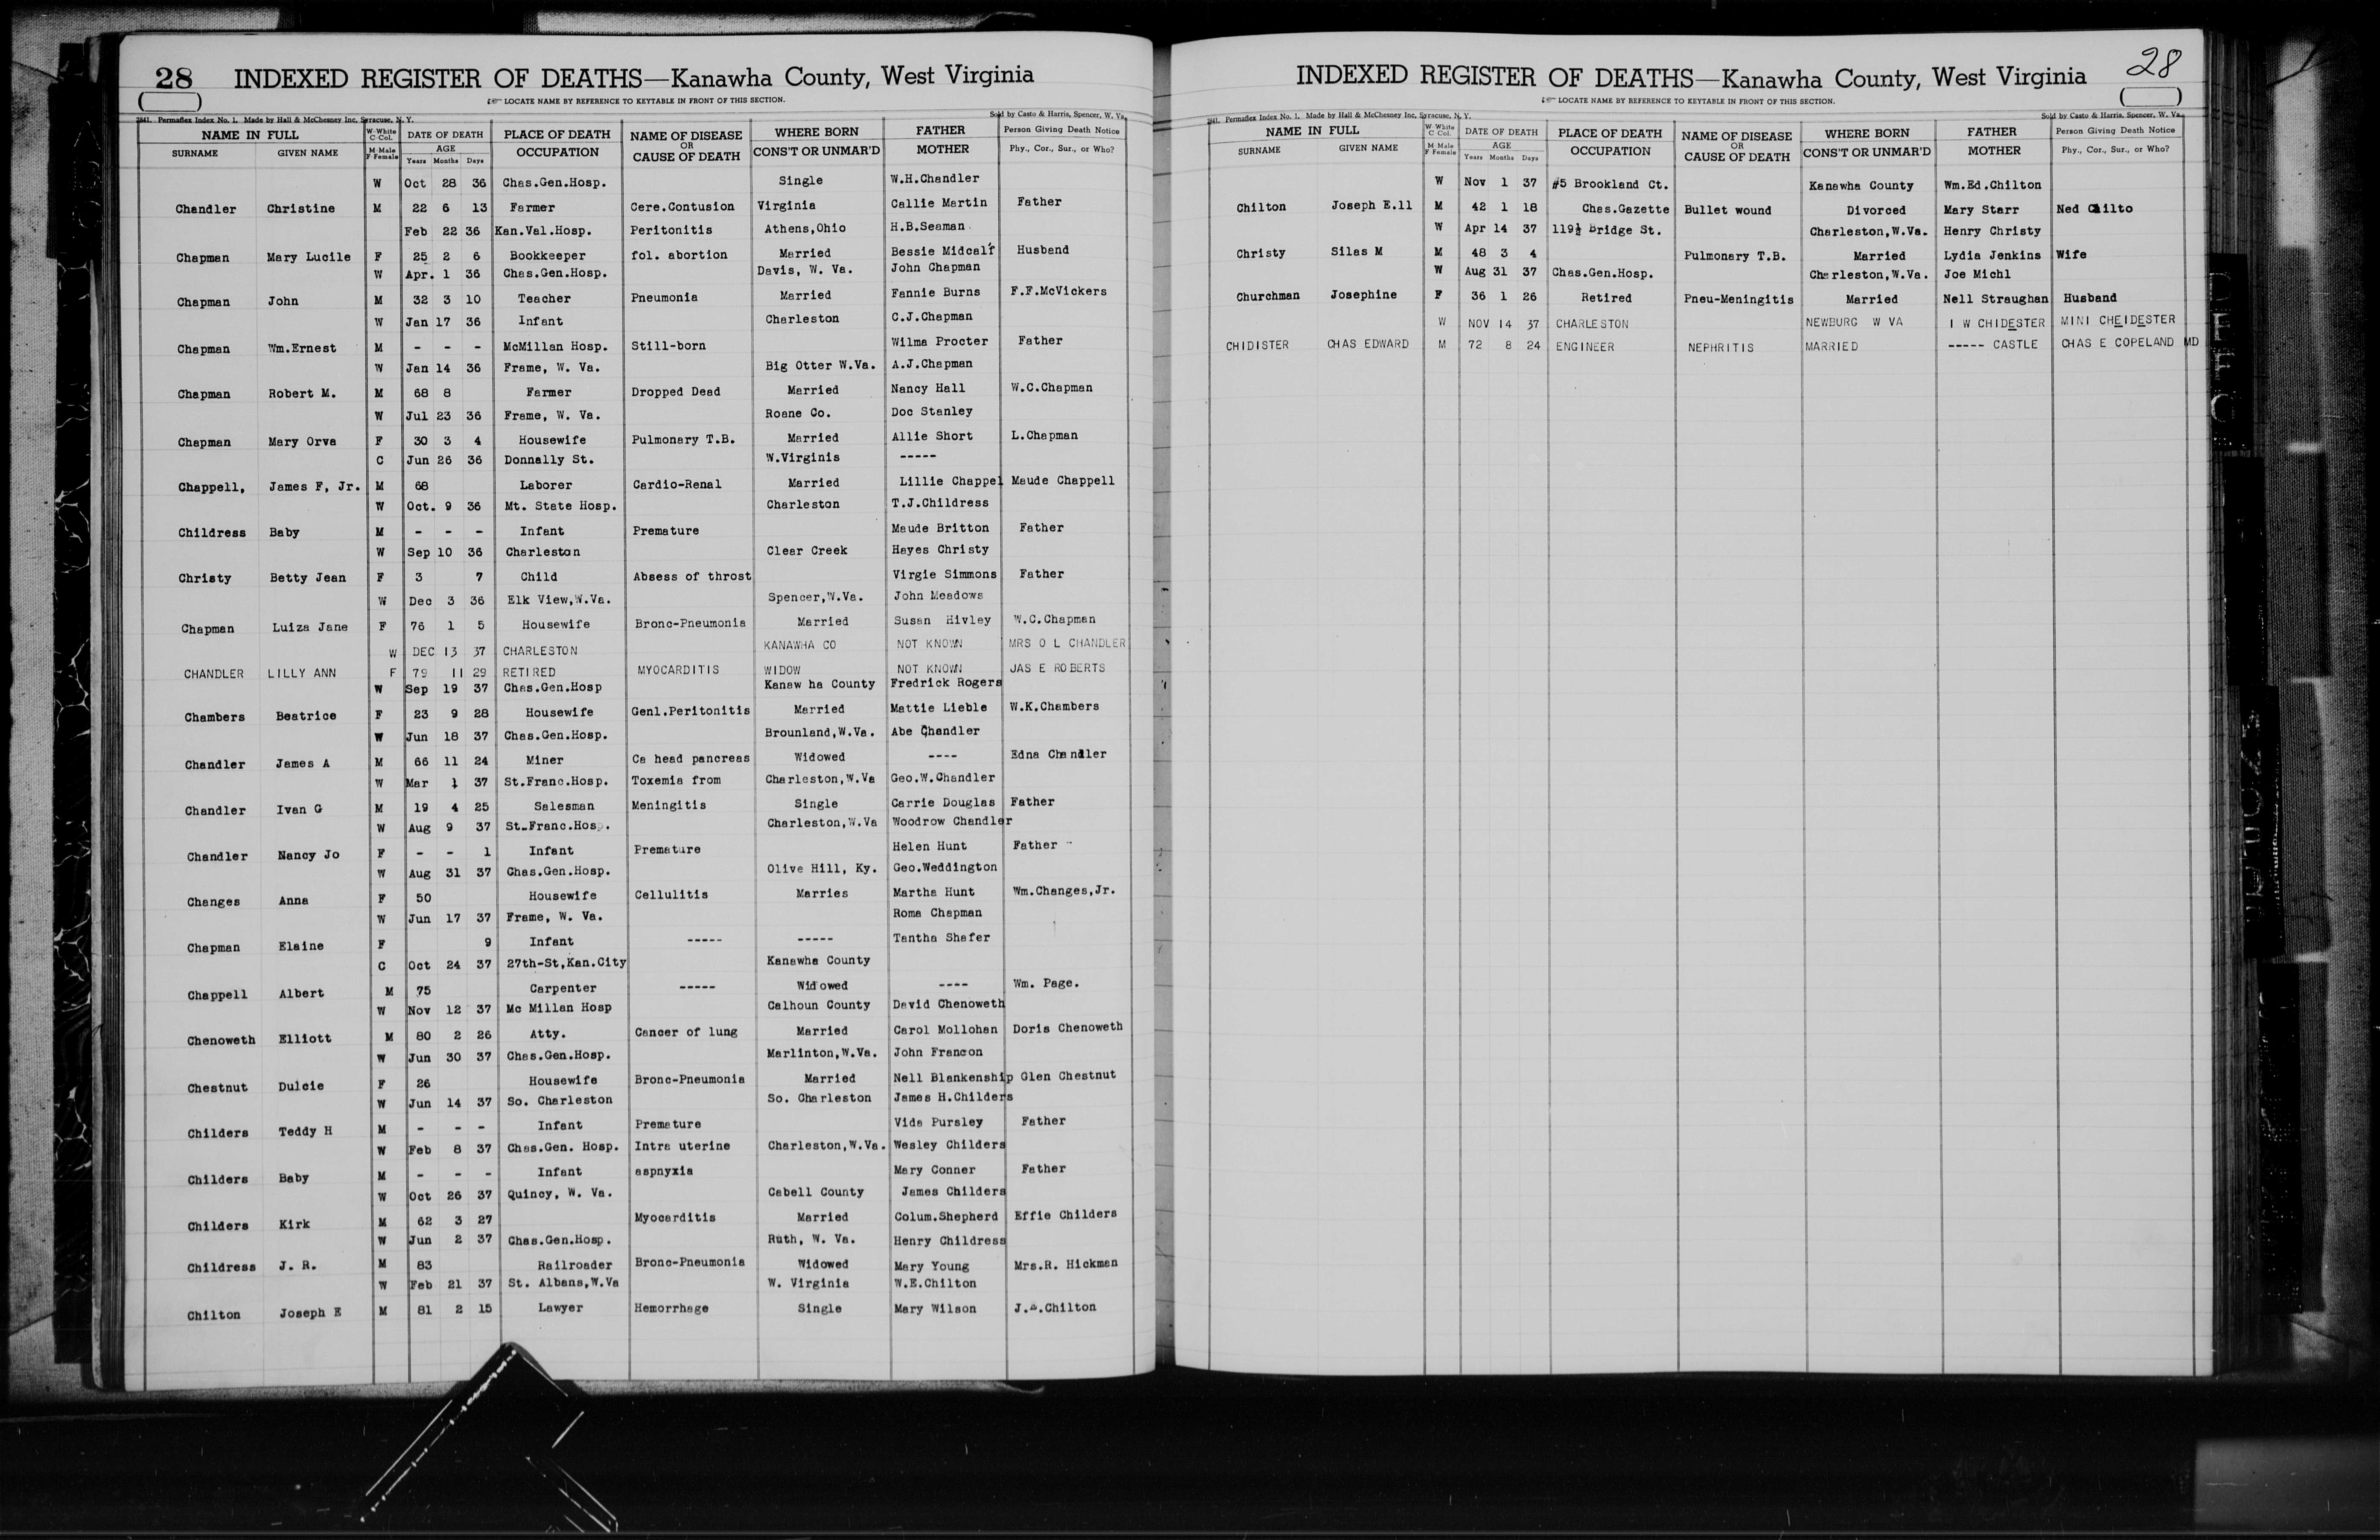 28 INDEXED REGISTER OF DEATHS—Kanawha County, West Virginia
LOCATE NAME BY REFERENCE TO KEYTABLE IN FRONT OF THIS SECTION.
2841. Permaflex Index No. 1. Made by Hall & McChesney Inc, Syracuse, N. Y. Sold by Casto & Harris, Spencer, W. Va.
NAME IN FULL W-White C Col. DATE OF DEATH PLACE OF DEATH NAME OF DISEASE OR CAUSE OF DEATH WHERE BORN FATHER Person Giving Death Notice
SURNAME GIVEN NAME M Male F Female AGE Years Months Days OCCUPATION CONS'T OR UNMAR'D MOTHER Phy., Cor., Sur., or Who?
W Oct 28 36 Chas.Gen.Hosp. Single W.H.Chandler
Chandler Christine M 22 6 13 Farmer Cere.Contusion Virginia Callie Martin Father
Feb 22 36 Kan.Val.Hosp. Peritonitis Athens,Ohio H.B.Seaman
Chapman Mary Lucile F 25 2 6 Bookkeeper fol. abortion Married Bessie Midcalf Husband
W Apr. 1 36 Chas.Gen.Hosp. Davis, W. Va. John Chapman
Chapman John M 32 3 10 Teacher Pneumonia Married Fannie Burns F.F.McVickers
W Jan 17 36 Infant Charleston C.J.Chapman
Chapman Wm.Ernest M - - - McMillan Hosp. Still-born Wilma Procter Father
W Jan 14 36 Frame, W. Va. Big Otter W.Va. A.J.Chapman
Chapman Robert M. M 68 8 Farmer Dropped Dead Married Nancy Hall W.C.Chapman
W Jul 23 36 Frame, W. Va. Roane Co. Doc Stanley
Chapman Mary Orva F 30 3 4 Housewife Pulmonary T.B. Married Allie Short L.Chapman
C Jun 26 36 Donnally St. W.Virginis -----
Chappell, James F, Jr. M 68 Laborer Cardio-Renal Married Lillie Chappel Maude Chappell
W Oct. 9 36 Mt. State Hosp. Charleston T.J.Childress
Childress Baby M - - - Infant Premature Maude Britton Father
W Sep 10 36 Charleston Clear Creek Hayes Christy
Christy Betty Jean F 3 7 Child Absess of throst Virgie Simmons Father
W Dec 3 36 Elk View,W.Va. Spencer,W.Va. John Meadows
Chapman Luiza Jane F 76 1 5 Housewife Bronc-Pneumonia Married Susan Hivley W.C.Chapman
W DEC 13 37 CHARLESTON KANAWHA CO NOT KNOWN MRS O L CHANDLER
CHANDLER LILLY ANN F 79 11 29 RETIRED MYOCARDITIS WIDOW NOT KNOWN JAS E ROBERTS
W Sep 19 37 Chas.Gen.Hosp Kanaw ha County Fredrick Rogers
Chambers Beatrice F 23 9 28 Housewife Genl.Peritonitis Married Mattie Lieble W.K.Chambers
W Jun 18 37 Chas.Gen.Hosp. Brounland,W.Va. Abe Chandler
Chandler James A M 66 11 24 Miner Ca head pancreas Widowed ---- Edna Chandler
W Mar 1 37 St.Franc.Hosp. Toxemia from Charleston,W.Va Geo.W.Chandler
Chandler Ivan G M 19 4 25 Salesman Meningitis Single Carrie Douglas Father
W Aug 9 37 St.Franc.Hosp. Charleston,W.Va Woodrow Chandler
Chandler Nancy Jo F - - 1 Infant Premature Helen Hunt Father
W Aug 31 37 Chas.Gen.Hosp. Olive Hill, Ky. Geo.Weddington
Changes Anna F 50 Housewife Cellulitis Marries Martha Hunt Wm.Changes,Jr.
W Jun 17 37 Frame, W. Va. Roma Chapman
Chapman Elaine F 9 Infant ----- ----- Tantha Shafer
C Oct 24 37 27th-St,Kan.City Kanawha County
Chappell Albert M 75 Carpenter ----- Widowed ---- Wm. Page.
W Nov 12 37 Mc Millan Hosp Calhoun County David Chenoweth
Chenoweth Elliott M 80 2 26 Atty. Cancer of lung Married Carol Mollohan Doris Chenoweth
W Jun 30 37 Chas.Gen.Hosp. Marlinton,W.Va. John Francon
Chestnut Dulcie F 26 Housewife Bronc-Pneumonia Married Nell Blankenship Glen Chestnut
W Jun 14 37 So. Charleston So. Charleston James H.Childers
Childers Teddy H M - - - Infant Premature Vida Pursley Father
W Feb 8 37 Chas.Gen. Hosp. Intra uterine Charleston,W.Va. Wesley Childers
Childers Baby M - - - Infant aspnyxia Mary Conner Father
W Oct 26 37 Quincy, W. Va. Cabell County James Childers
Childers Kirk M 62 3 27 Myocarditis Married Colum.Shepherd Effie Childers
W Jun 2 37 Chas.Gen.Hosp. Ruth, W. Va. Henry Childress
Childress J. R. M 83 Railroader Bronc-Pneumonia Widowed Mary Young Mrs.R. Hickman
W Feb 21 37 St. Albans,W.Va W. Virginia W.E.Chilton
Chilton Joseph E M 81 2 15 Lawyer Hemorrhage Single Mary Wilson Chilton
INDEXED REGISTER OF DEATHS—Kanawha County, West Virginia 28
LOCATE NAME BY REFERENCE TO KEYTABLE IN FRONT OF THIS SECTION.
2841. Permaflex Index No. 1. Made by Hall & McChesney Inc, Syracuse, N. Y. Sold by Casto & Harris, Spencer, W. Va.
NAME IN FULL W-White C Col. DATE OF DEATH PLACE OF DEATH NAME OF DISEASE OR CAUSE OF DEATH WHERE BORN FATHER Person Giving Death Notice
SURNAME GIVEN NAME M Male F Female AGE Years Months Days OCCUPATION CONS'T OR UNMAR'D MOTHER Phy., Cor., Sur., or Who?
W Nov 1 37 #5 Brookland Ct. Kanawha County Wm.Ed.Chilton
Chilton Joseph E.ll M 42 1 18 Chas.Gazette Bullet wound Divorced Mary Starr Ned
W Apr 14 37 119½ Bridge St. Charleston,W.Va. Henry Christy
Christy Silas M M 48 3 4 Pulmonary T.B. Married Lydia Jenkins Wife
W Aug 31 37 Chas.Gen.Hosp. Charleston,W.Va. Joe Michl
Churchman Josephine F 36 1 26 Retired Pneu-Meningitis Married Nell Straughan Husband
W NOV 14 37 CHARLESTON NEWBURG W VA I W CHIDESTER MINI CHEIDESTER
CHIDISTER CHAS EDWARD M 72 8 24 ENGINEER NEPHRITIS MARRIED ----- CASTLE CHAS E COPELAND MD